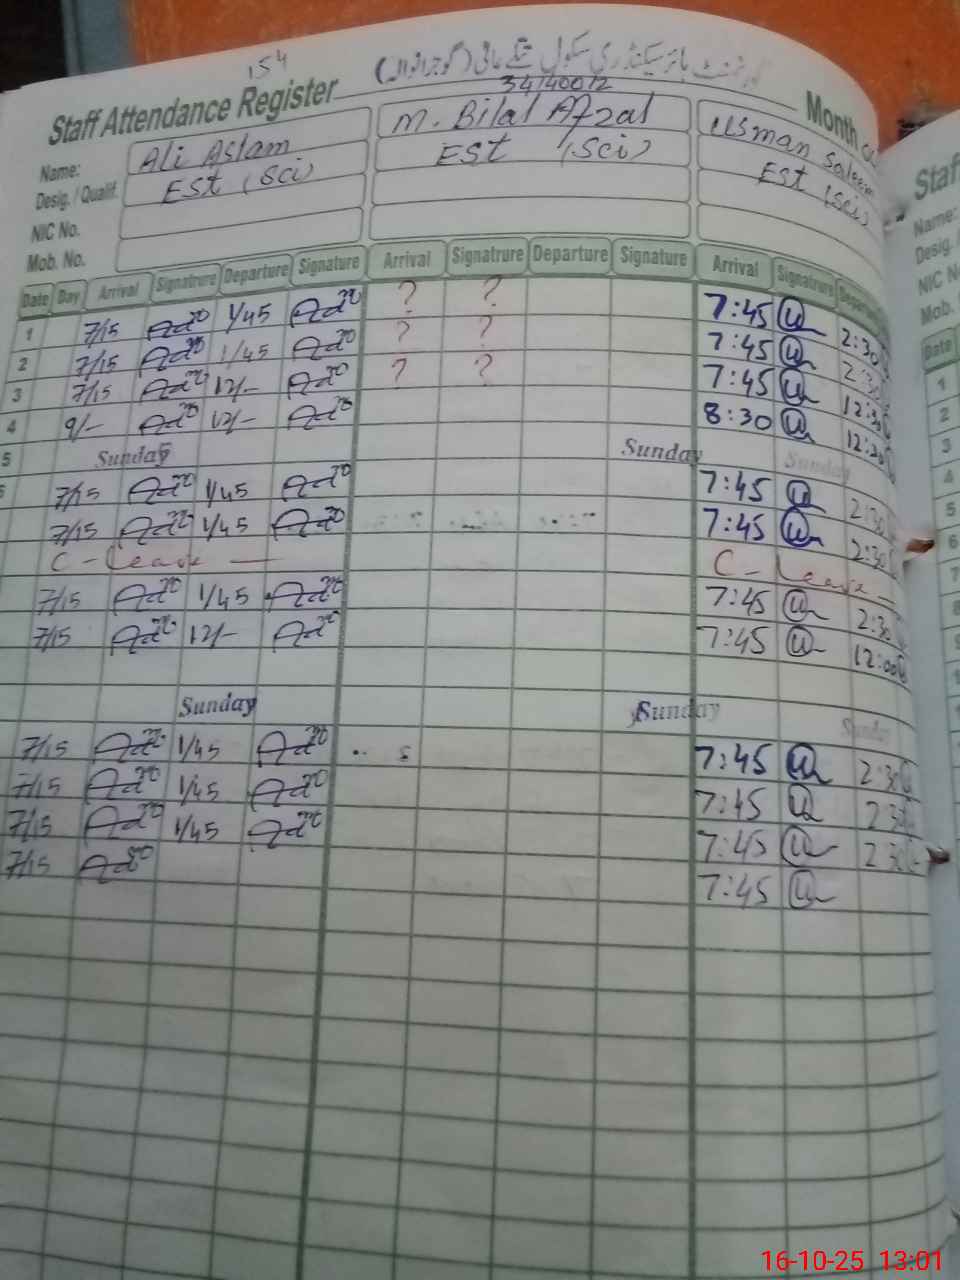 154
گورنمنٹ ہائر سیکنڈری سکول
34140012
Staff Attendance Register Month
Name: Ali Aslam M. Bilal Afzal Usman Saleem
Desig. / Qualif. ESt (Sci) ESt (Sci) ESt (Sci)
NIC No.
Mob. No.
Date Day Arrival Signatrure Departure Signature Arrival Signatrure Departure Signature Arrival Signatrure
1 7/15 1/45 ? ? 7:45 2:30
2 7/15 1/45 ? ? 7:45 2:30
3 7/15 12/- ? ? 7:45 12:30
4 9/- 12/- 8:30 12:30
5 Sunday Sunday Sunday
7/15 1/45 7:45 2:30
7/15 1/45 7:45 2:30
C - Leave C - Leave
7/15 1/45 7:45 2:30
7/15 12/- 7:45 12:00
Sunday Sunday Sunday
7/15 1/45 7:45 2:30
7/15 1/45 7:45 2:30
7/15 1/45 7:45 2:30
7/15 7:45
Name:
Desig.
NIC N
Mob.
Date
1
2
3
4
5
6
7
8
16-10-25 13:01